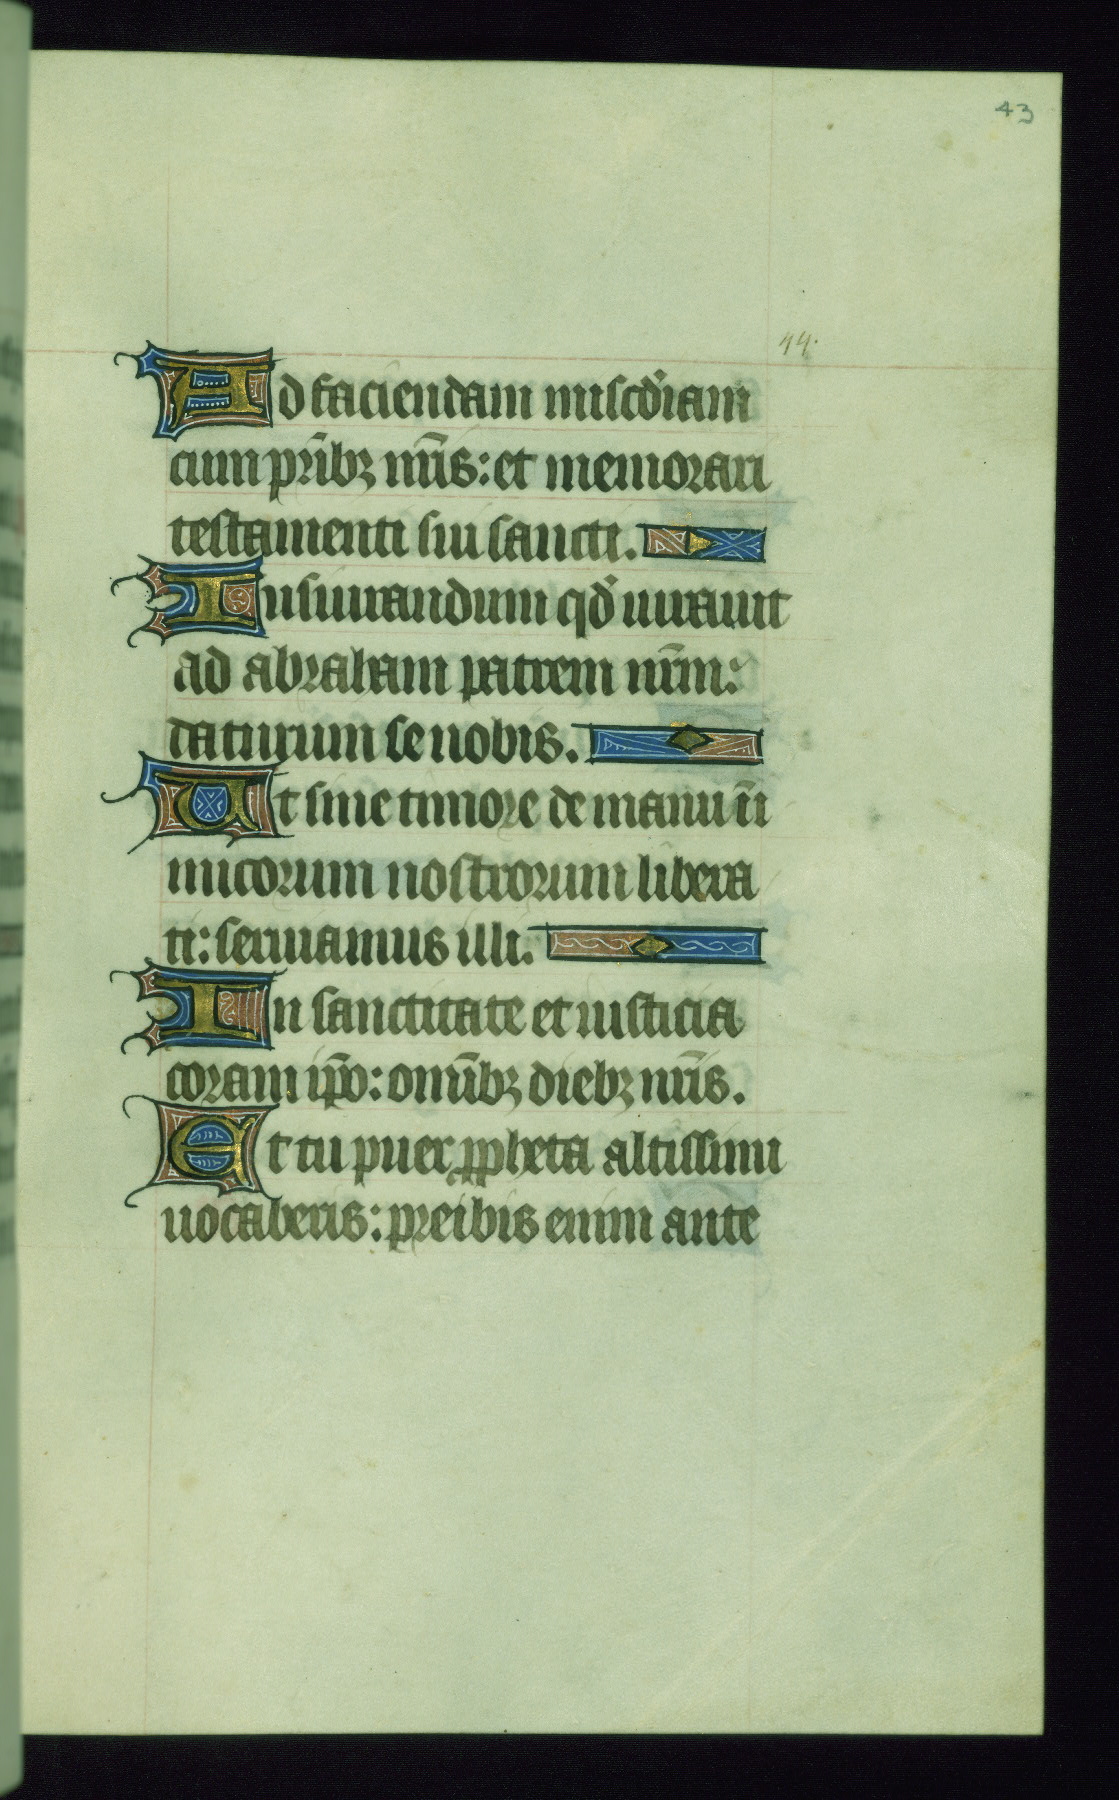 43
44.
Ad faciendam miscd̾iam
cum pr̄ibꝫ nr̄is: et memorari
testamenti sui sancti.
Iusiurandum qd̾ iurauit
ad abraham patrem nr̄m:
daturum se nobis.
Ut sine timore de manu ini
micorum nostrorum libera
ti: seruiamus illi.
In sanctitate et iusticia
coram ip̄o: omībꝫ diebꝫ nr̄is.
Et tu puer ꝓpheta altissimi
uocaberis: preibis enim ante